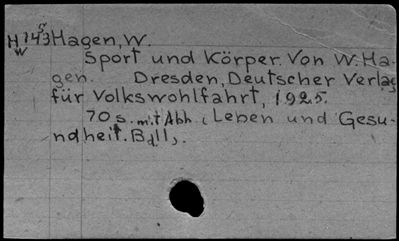 H 143 Hagen, W.
W Sport und Körper. Von W. Ha-
gen. Dresden, Deutscher Verlag
für Volkswohlfahrt, 1925.
70 s. mit Abh. (Leben und Gesu-
ndheit. Bd